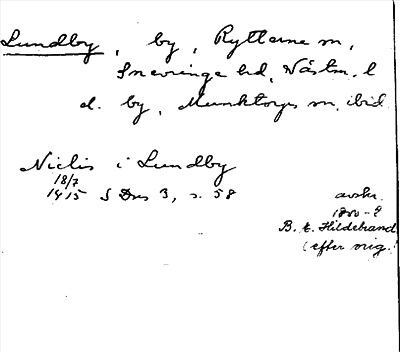 Lundby, by, Rytterne sn,
Snevringe hd, Västm. l
el. by, Munktorps sn, ibid
Niclis i Lundby
18/7
1415 SDns 3, s. 58
avskr.
1800-t
B. E. Hildebrand
(efter orig.)